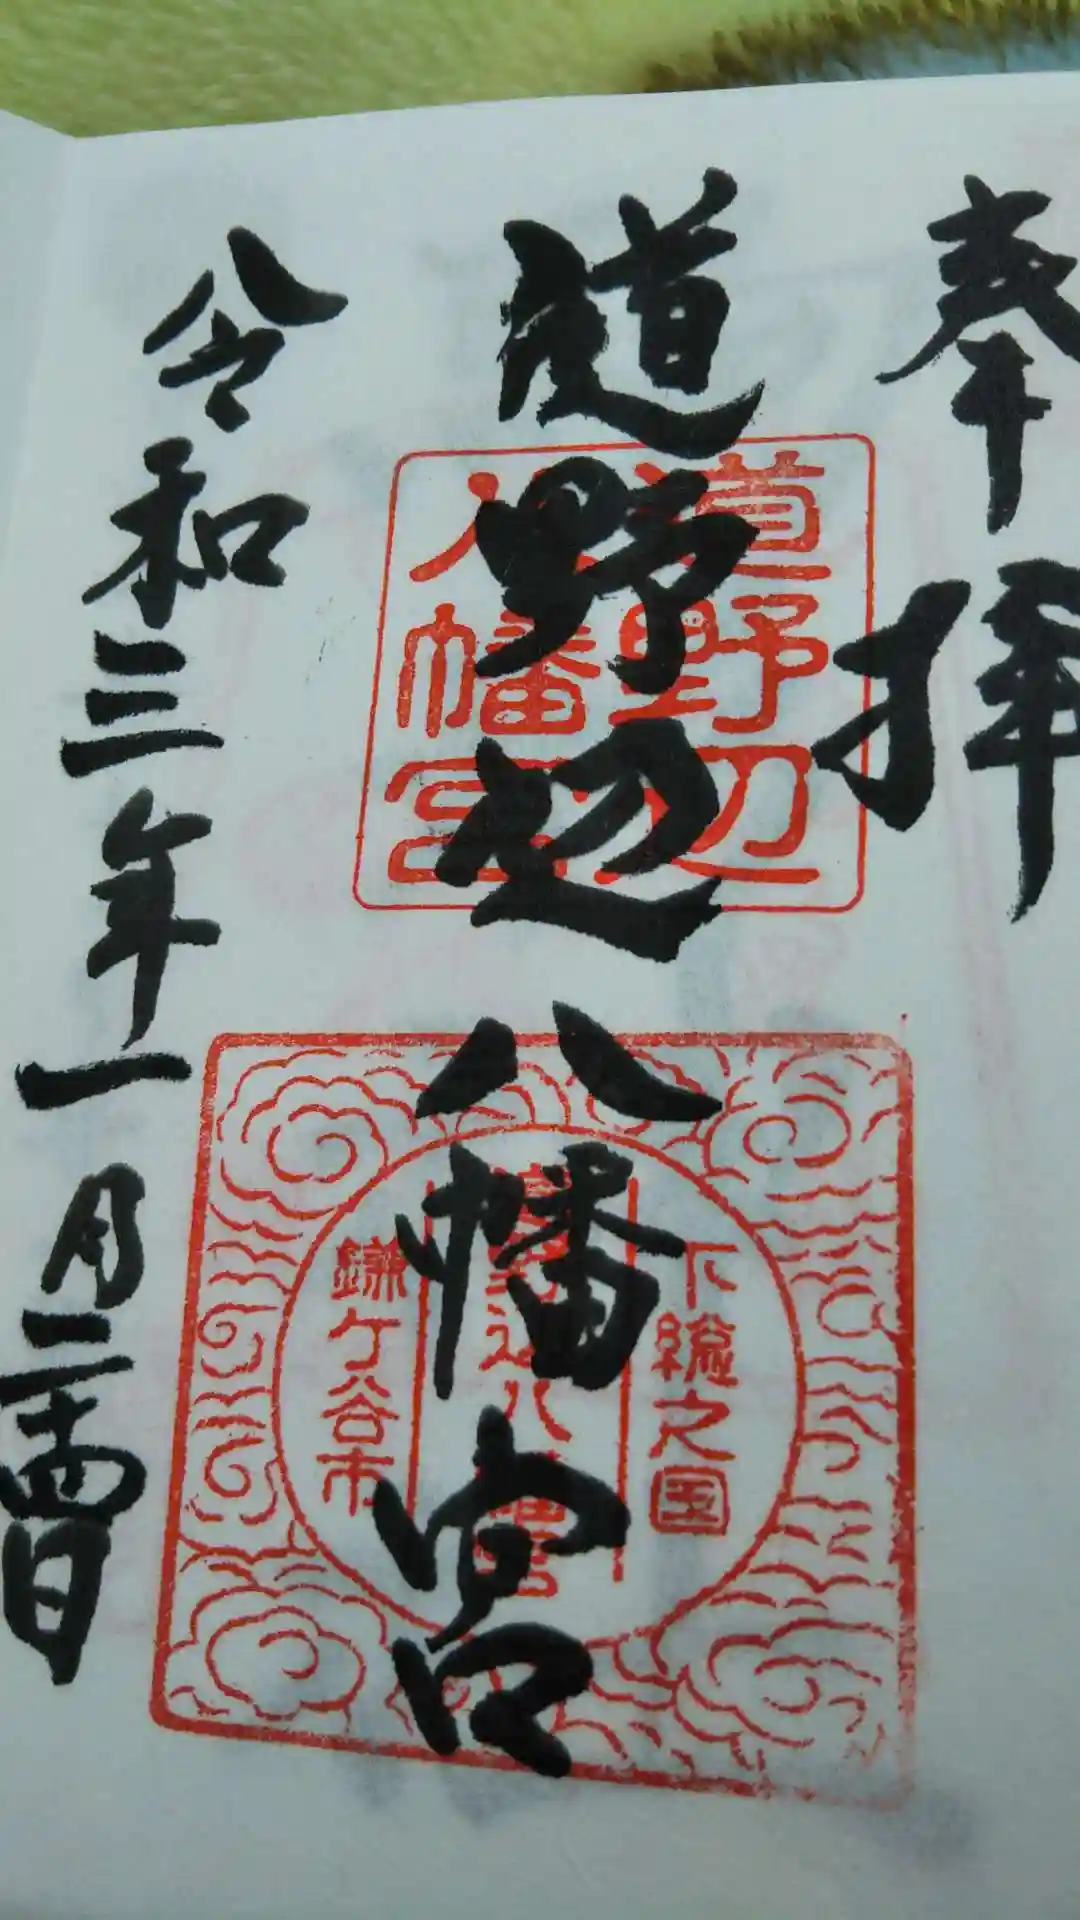 奉拝
道野辺八幡宮
令和三年一月二十四日
道野辺
八幡宮
下総之国
道野辺八幡宮
鎌ケ谷市